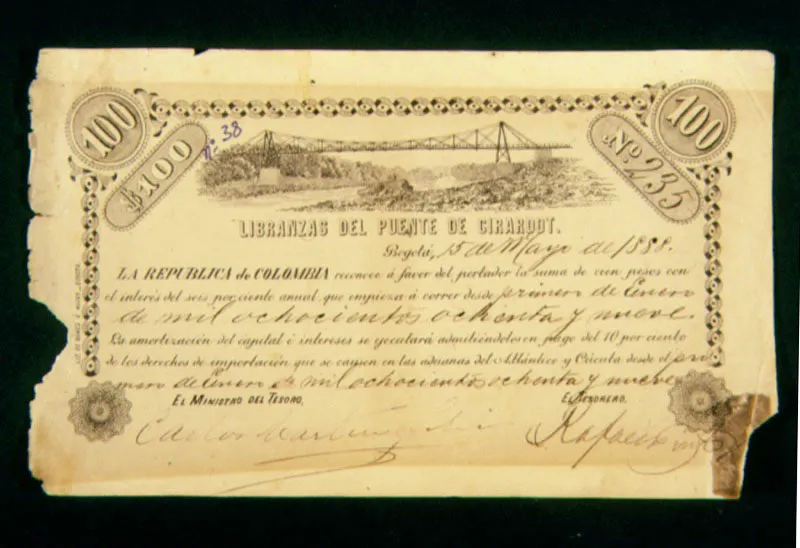 100
100
$100
nº 38
Nº 235
LIBRANZAS DEL PUENTE DE GIRARDOT.
Bogotá, 15 de Mayo de 1888.
LA REPUBLICA de COLOMBIA reconoce á favor del portador la suma de cien pesos con
el interés del seis por ciento anual, que empieza á correr desde primero de Enero
de mil ochocientos ochenta y nueve.
La amortización del capital é intereses se ejecutará admitiéndolos en pago del 10 por ciento
de los derechos de importación que se causen en las aduanas del Atlántico y Cúcuta desde el pri
mero de Enero de mil ochocientos ochenta y nueve
EL MINISTRO DEL TESORO,
EL TESORERO,
Carlos Martínez
Rafael